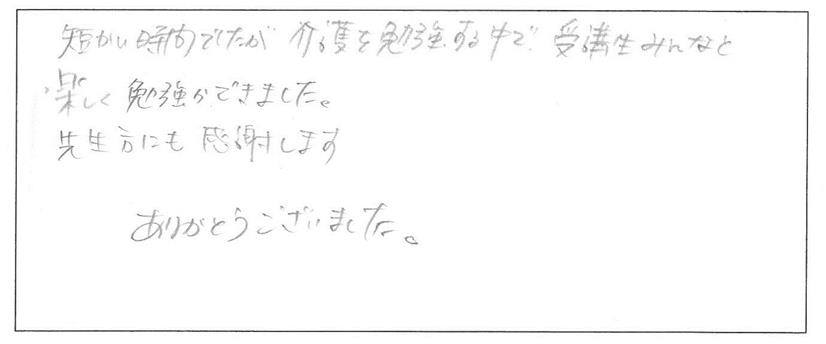 短かい時間でしたが 介護を勉強する中で 受講生みんなと
楽しく 勉強ができました。
先生方にも 感謝します
ありがとうございました。